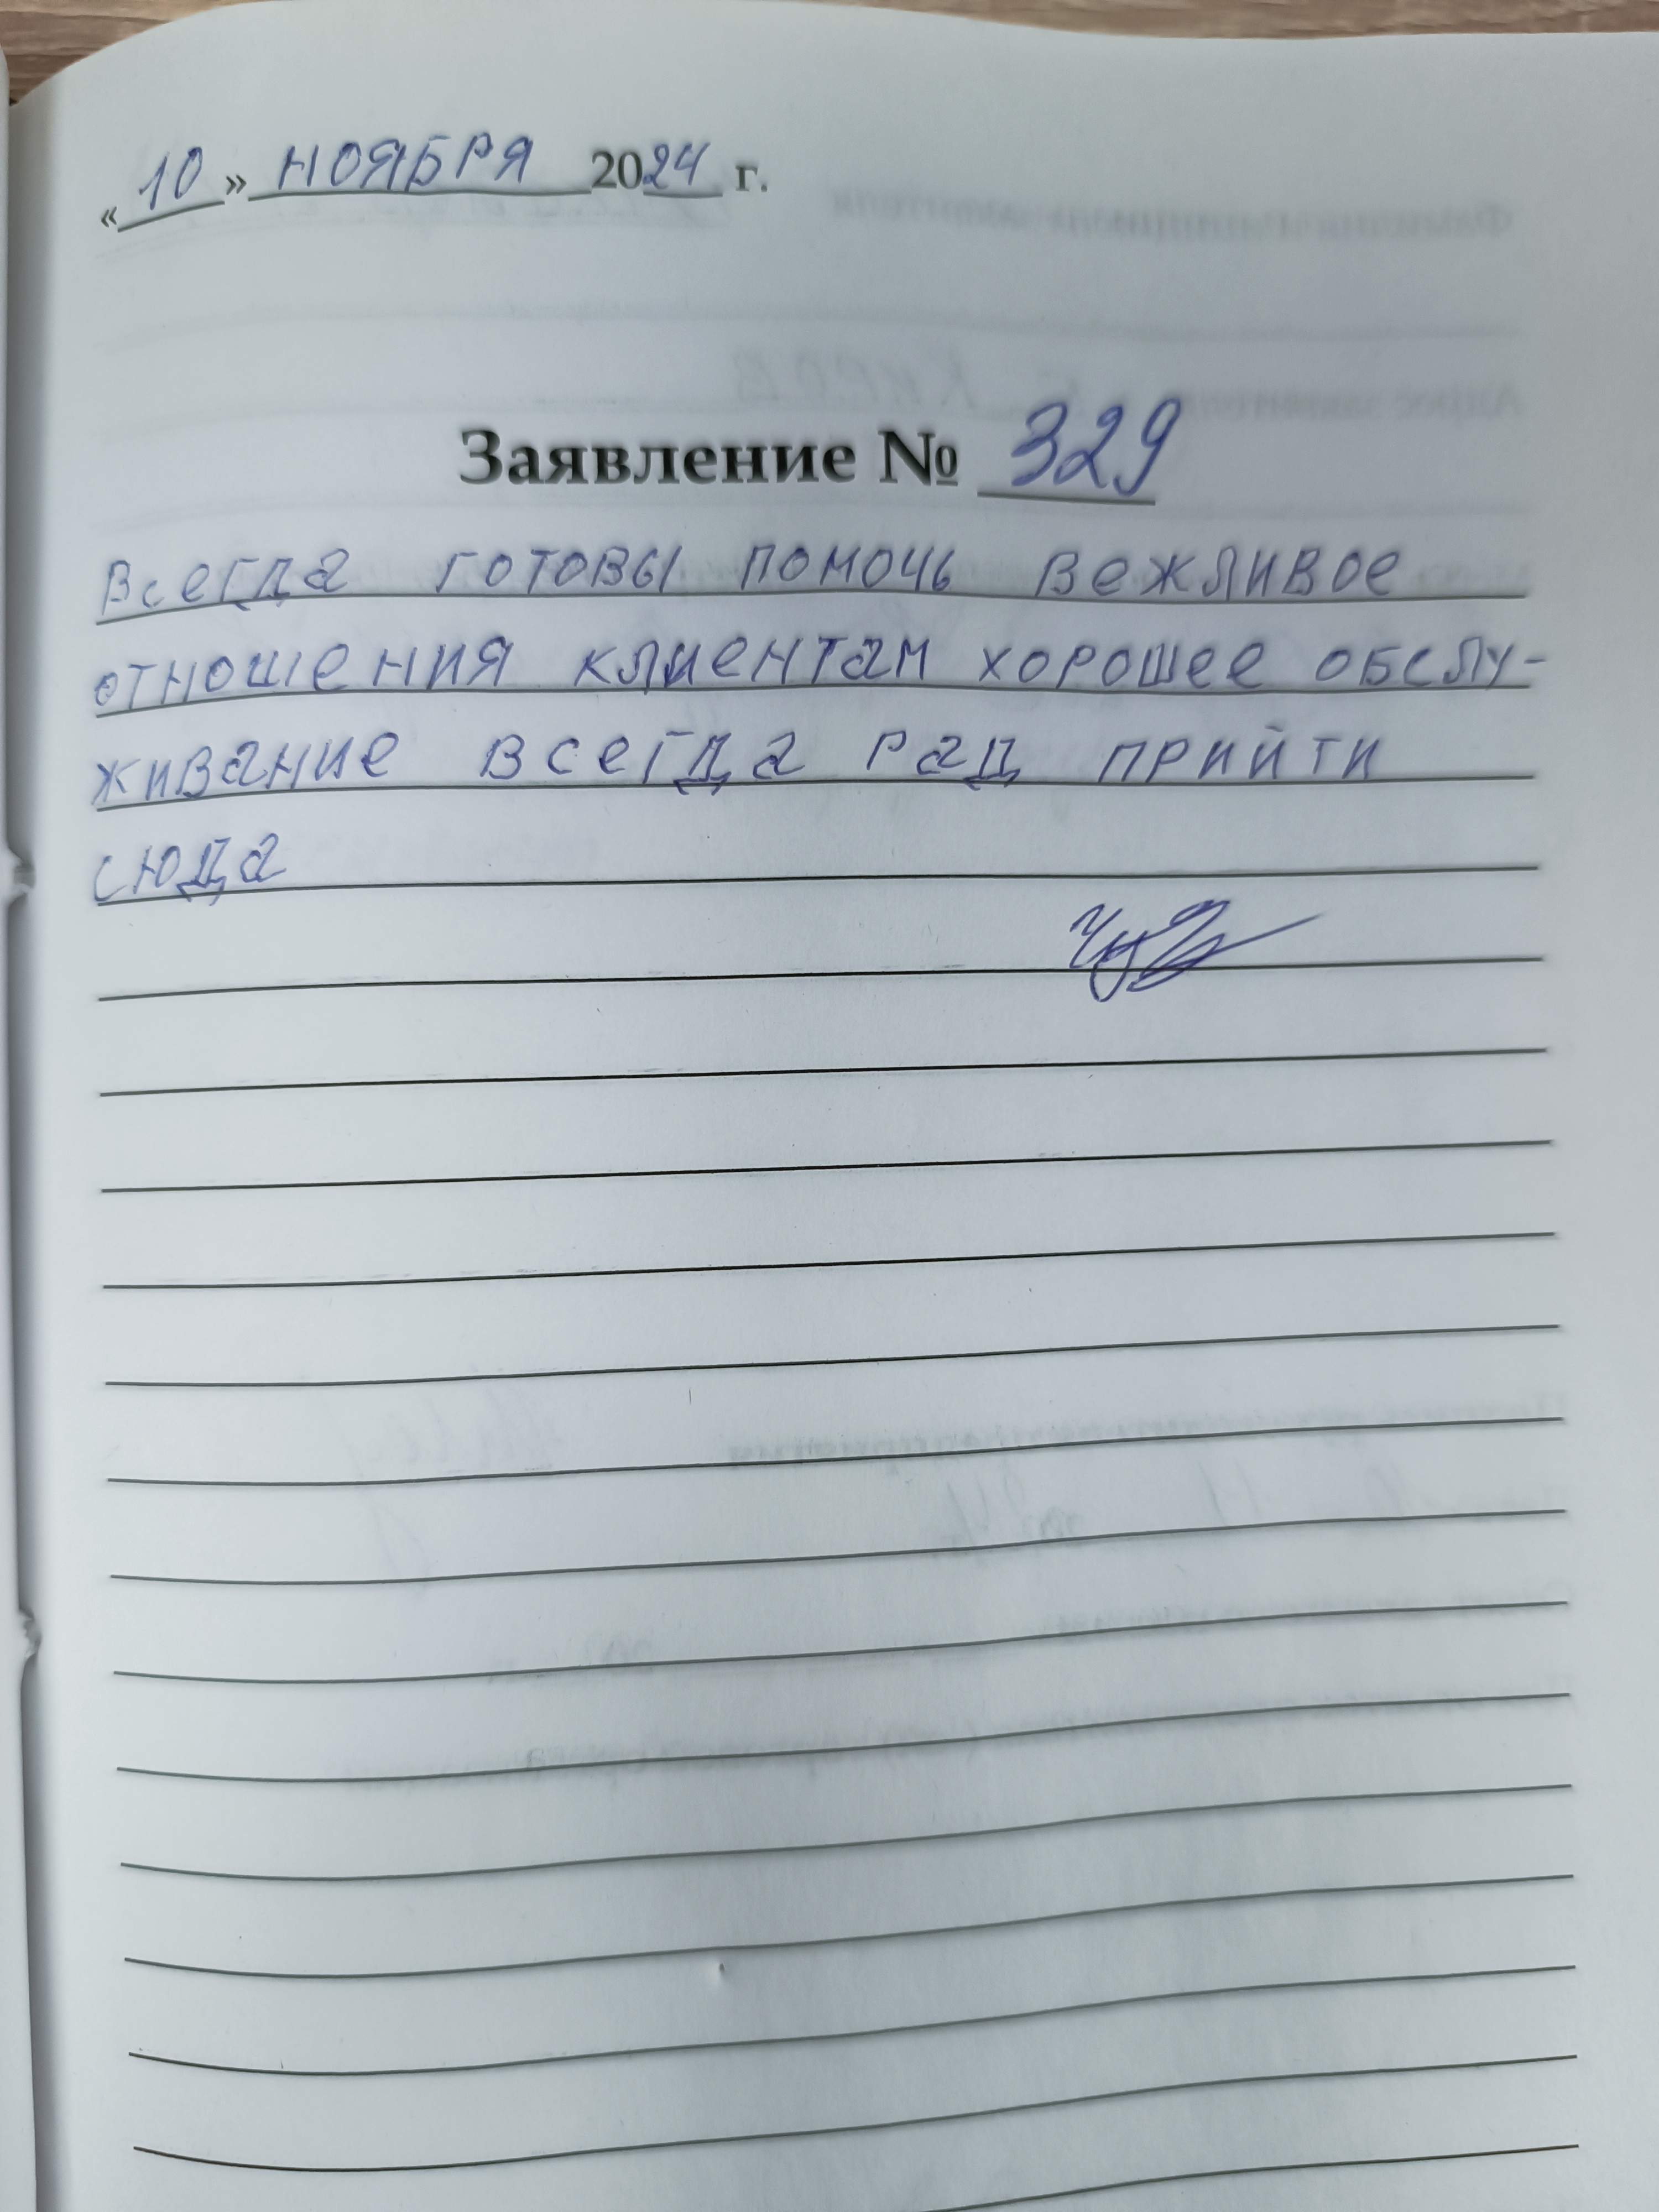 «10» НОЯБРЯ 2024 г.
Заявление № 329
Всегда готовы помочь вежливое
отношения клиентам хорошее обслу-
живание всегда рад прийти
сюда